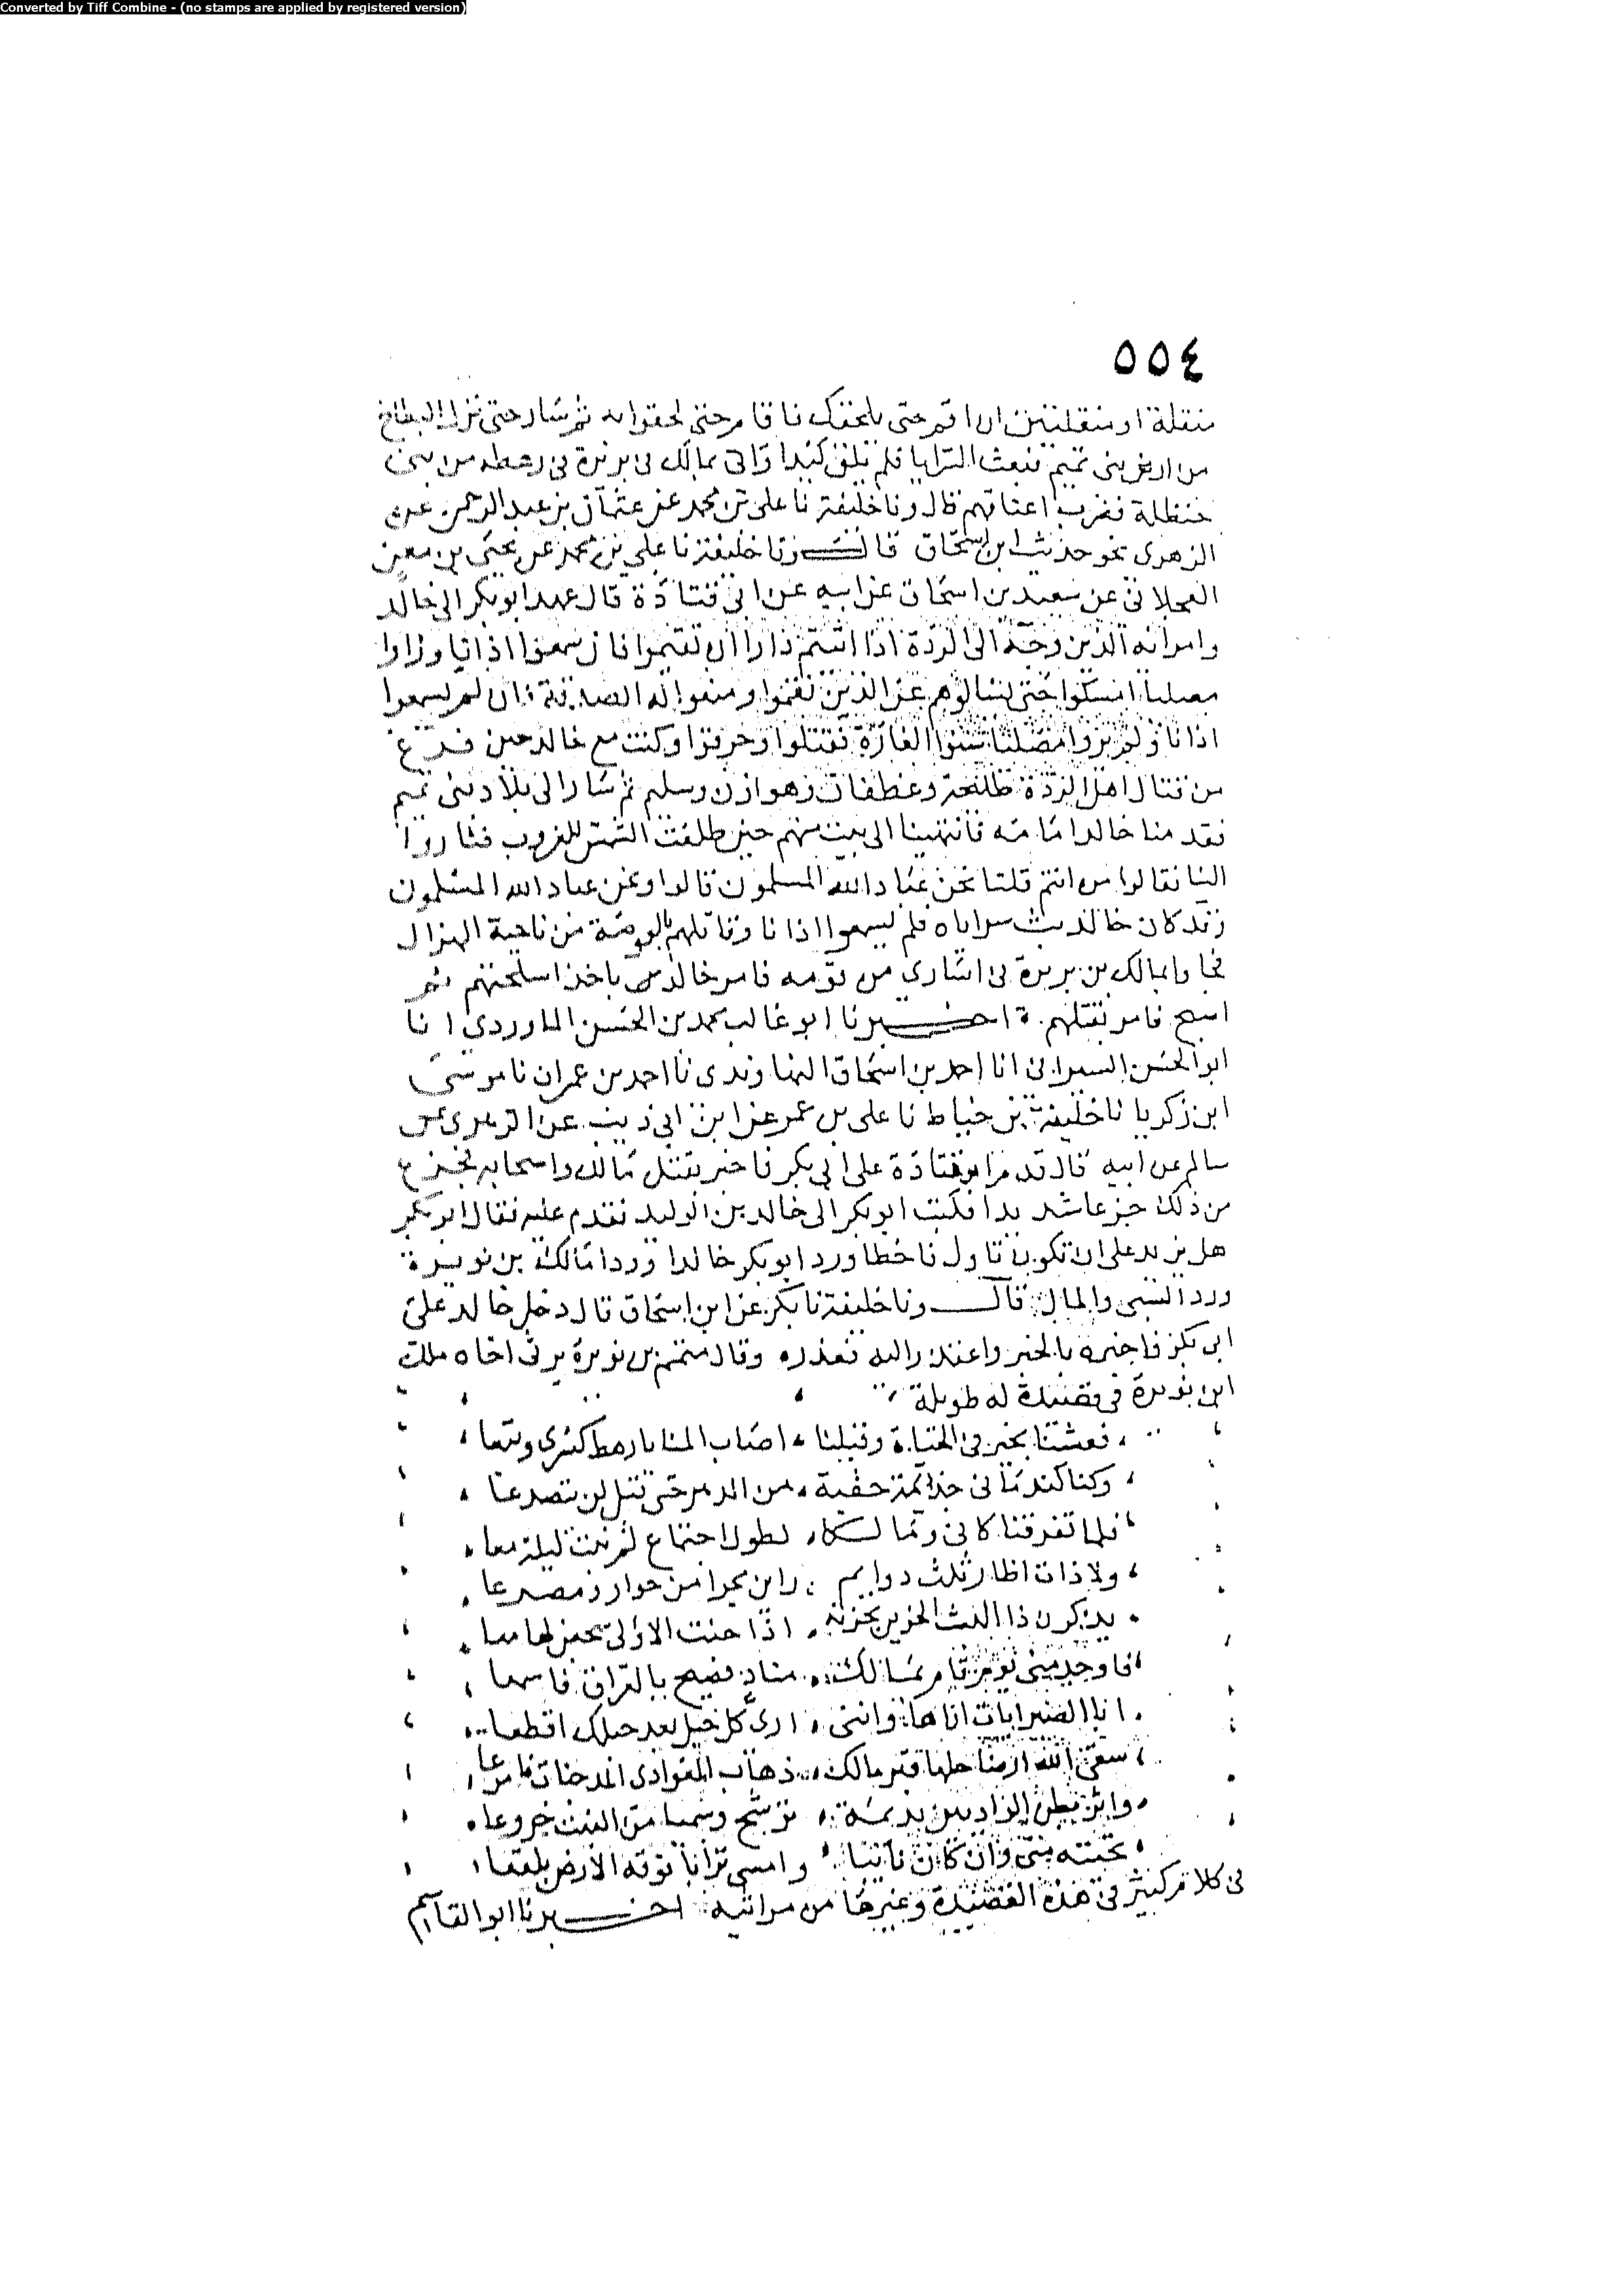 Converted by Tiff Combine - (no stamps are applied by registered version)
٥٥٤
منقلة او منقلتين ان اقم حتى نلحقك فاقام حتى لحقوا به ثم سار حتى نزل البطاح
من ارض بنى تميم فبعث السرايا فلم يلق كيدا واتى بمالك بن نويرة فى رهطه من بنى
حنظلة فضرب اعناقهم قال ونا خليفة نا على بن محمد عن عثمان بن عبد الرحمن عن
الزهرى نحو حديث ابن اسحاق قال ونا خليفة نا على بن محمد عن يحيى بن معين
العجلانى عن سعيد بن اسحاق عن ابيه عن ابى قتادة قال عهد ابو بكر الى خالد
وامرائه الذين وجه الى الردة اذا اتيتم دارا ان تقيموا فان سمعوا اذانا وراوا
مصليا امسكوا حتى يسالوهم عن الذين نقموا ومنعوا له الصدقة فان لم يسمعوا
اذانا ولم يروا مصليا شنوا الغارة فقتلوا وحرقوا وكنت مع خالد حين فرغ
من قتال اهل الردة طليحة وغطفان وهوازن وسليم ثم سار الى بلاد بنى تميم
فقدمنا خالد امامه فانتهينا الى بيت منهم حين طلعت الشمس للغروب فثاروا
الينا فقالوا من انتم قلنا نحن عباد الله المسلمون قالوا ونحن عباد الله المسلمون
وقد كان خالد بث سراياه فلم يسمعوا اذانا وقاتلهم بالبعوضة من ناحية الهزال
فجاوا بمالك بن نويرة فى اسارى من قومه فامر خالد باخذ اسلحتهم ثم
اصبح فامر بقتلهم اخبرنا ابو غالب محمد بن الحسن الماوردى انا
ابو الحسن السيرافى انا احمد بن اسحاق النهاوندى نا احمد بن عمران نا موسى
ابن زكريا نا خليفة بن خياط نا على بن عمر عن ابن ابى ذيب عن الزهرى عن
سالم عن ابيه قال قدم ابو قتادة على ابى بكر فاخبر بقتل مالك واصحابه فجزع
من ذلك جزعا شديدا فكتب ابو بكر الى خالد بن الوليد فقدم عليه فقال ابو بكر
هل يزيد على ان تكون تاول فاخطا ورد ابو بكر خالدا وودا مالك بن نويرة
ورد السبى والمال قال ونا خليفة نا بكر عن ابن اسحاق قال دخل خالد على
ابى بكر فاخبره بالخبر واعتذر اليه فعذره وقال متمم بن نويرة يرثى اخاه مالك
ابن نويرة فى قصيدة له طويلة
فعشنا بخير فى الحياة وقبلنا اصاب المنايا رهط كسرى وتبعا
وكنا كندمانى جذيمة حقبة من الدهر حتى قيل لن يتصدعا
فلما تفرقنا كانى ومالكا لطول اجتماع لم نبت ليلة معا
ولا ذات اظار ثلث روايم راين مجرا من حوار ومصرعا
يذكرن ذا البث الحزين بحزنه اذا حنت الاولى سجعن لها معا
فاوجد منى يوم قام بمالك مناد فصيح بالفراق فاسمعا
ابا الصبر ايات اراها واننى ارى كل حبل بعد حبلك اقطعا
سقى الله ارضا حلها قبر مالك ذهاب الغوادى المدجنات فامرعا
واثر بطن الواديين بديمة ترشح وسميا من النبت خروعا
تحيته منى وان كان نائيا وامسى ترابا فوقه الارض بلقعا
فى كلام كثير فى هذه القصيدة وغيرها من مراثيه اخبرنا ابو القاسم